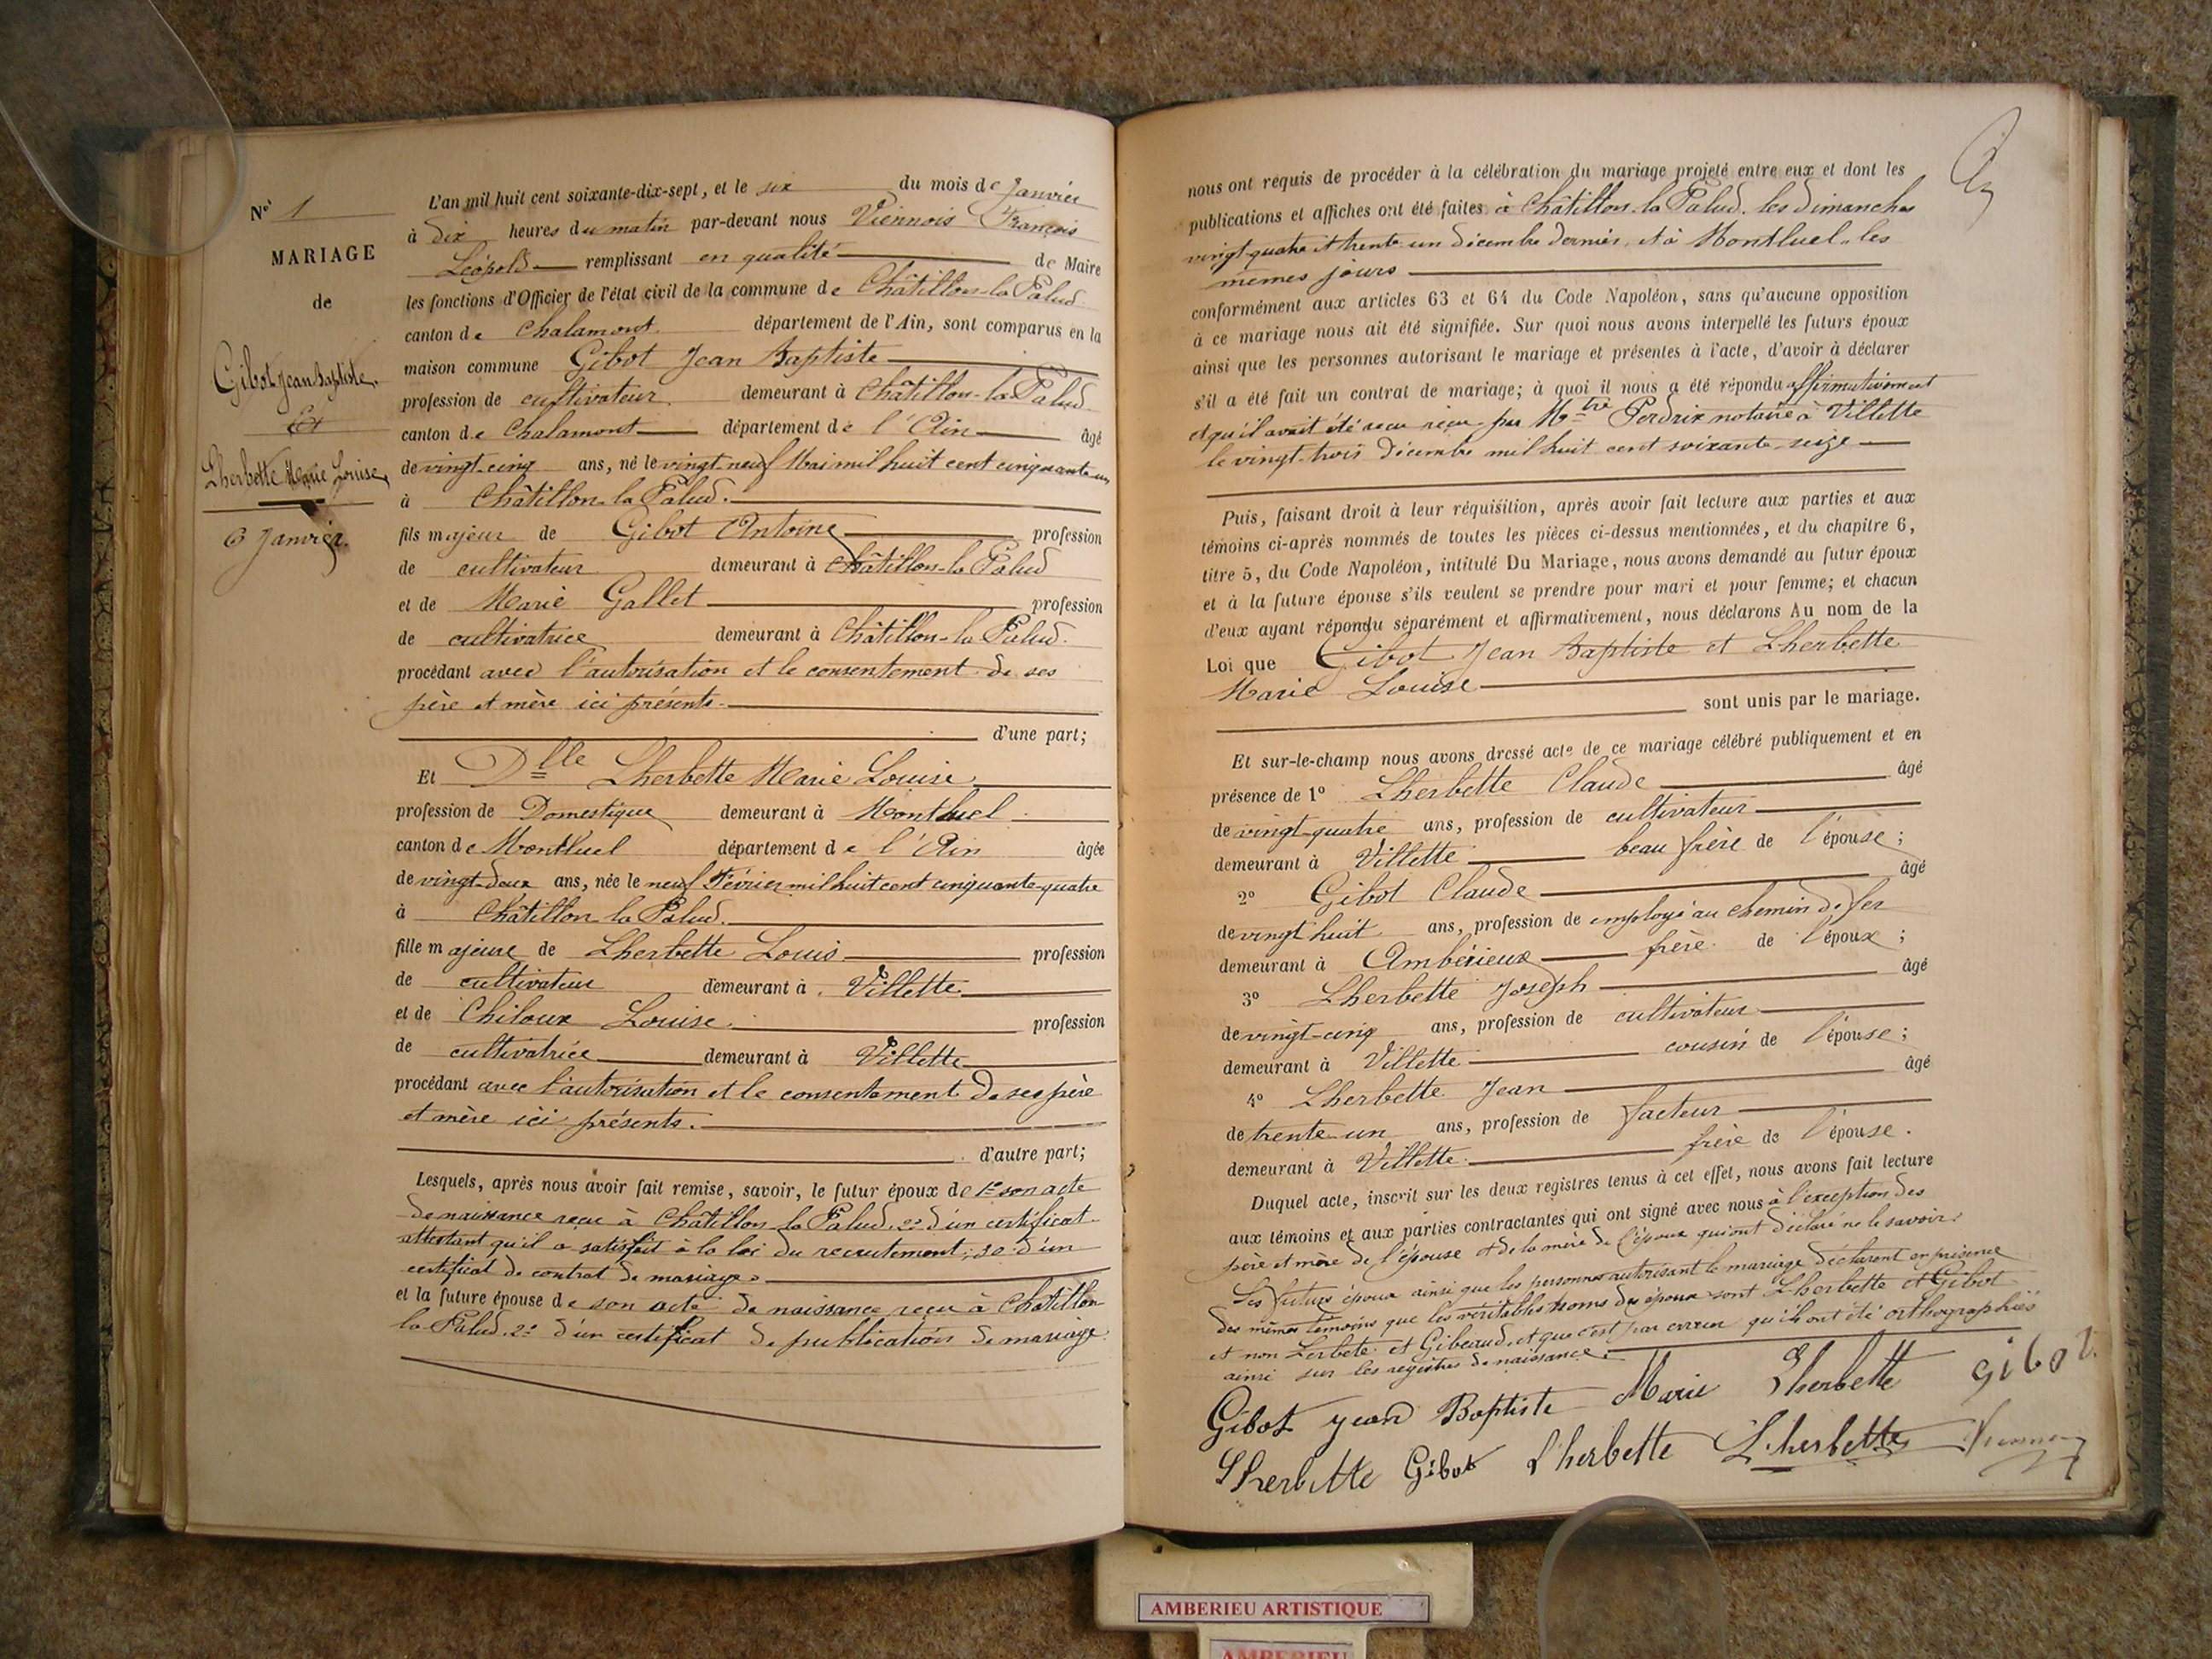 N° 1
MARIAGE
de
Gibot Jean Baptiste
Et
Lherbette Marie Louise
6 Janvier.
L'an mil huit cent soixante-dix-sept, et le six du mois de Janvier
à dix heures du matin par-devant nous Viennois François
Léopold remplissant en qualité de Maire
les fonctions d'Officier de l'état civil de la commune de Châtillon-la-Palud
canton de Chalamont département de l'Ain, sont comparus en la
maison commune Gibot Jean Baptiste
profession de cultivateur demeurant à Châtillon-la-Palud
canton de Chalamont département de l'Ain âgé
de vingt-cinq ans, né le vingt neuf Mai mil huit cent cinquante un
à Châtillon la Palud.
fils majeur de Gibot Antoine profession
de cultivateur demeurant à Châtillon-la Palud
et de Marie Gallet profession
de cultivatrice demeurant à Châtillon-la Palud.
procédant avec l'autorisation et le consentement de ses
père et mère ici présents.
d'une part;
Et Dlle Lherbette Marie Louise
profession de Domestique demeurant à Montluel
canton de Montluel département de l'Ain âgée
de vingt-deux ans, née le neuf Février mil huit cent cinquante-quatre
à Châtillon la Palud.
fille majeure de Lherbette Louis profession
de cultivateur demeurant à Villette
et de Chiloux Louise. profession
de cultivatrice demeurant à Villette
procédant avec l'autorisation et le consentement de ses père
et mère ici présents.
d'autre part;
Lesquels, après nous avoir fait remise, savoir, le futur époux de 1° son acte
de naissance reçu à Châtillon la Palud, 2° d'un certificat
attestant qu'il a satisfait à la loi du recrutement; 3° d'un
certificat de contrat de mariage
et la future épouse de son acte de naissance reçu à Châtillon
la Palud, 2° d'un certificat de publication de mariage.
nous ont requis de procéder à la célébration du mariage projeté entre eux et dont les
publications et affiches ont été faites à Châtillon-la Palud, les dimanches
vingt-quatre et trente un décembre dernier, et à Montluel les
mêmes jours
conformément aux articles 63 et 64 du Code Napoléon, sans qu'aucune opposition
à ce mariage nous ait été signifiée. Sur quoi nous avons interpellé les futurs époux
ainsi que les personnes autorisant le mariage et présentes à l'acte, d'avoir à déclarer
s'il a été fait un contrat de mariage; à quoi il nous a été répondu affirmativement
et qu'il avait été reçu par Mtre Perdrix notaire à Villette
le vingt-trois décembre mil huit cent soixante-seize
Puis, faisant droit à leur réquisition, après avoir fait lecture aux parties et aux
témoins ci-après nommés de toutes les pièces ci-dessus mentionnées, et du chapitre 6,
titre 5, du Code Napoléon, intitulé Du Mariage, nous avons demandé au futur époux
et à la future épouse s'ils veulent se prendre pour mari et pour femme; et chacun
d'eux ayant répondu séparément et affirmativement, nous déclarons Au nom de la
Loi que Gibot Jean Baptiste et Lherbette
Marie Louise
sont unis par le mariage.
Et sur-le-champ nous avons dressé acte de ce mariage célébré publiquement et en
présence de 1° Lherbette Claude âgé
de vingt-quatre ans, profession de cultivateur
demeurant à Villette beau frère de l'épouse;
2° Gibot Claude âgé
de vingt huit ans, profession de employé au chemin de fer
demeurant à Ambérieux frère de l'époux;
3° Lherbette Joseph âgé
de vingt-cinq ans, profession de cultivateur
demeurant à Villette cousin de l'épouse;
4° Lherbette Jean âgé
de trente-un ans, profession de facteur
demeurant à Villette frère de l'épouse.
Duquel acte, inscrit sur les deux registres tenus à cet effet, nous avons fait lecture
aux témoins et aux parties contractantes qui ont signé avec nous à l'exception des
père et mère de l'épouse et de la mère de l'époux qui ont déclaré ne le savoir.
Les futurs époux ainsi que les personnes autorisant le mariage déclarent en présence
des mêmes témoins que les véritables noms des époux sont Lherbette et Gibot
et non Lerbete et Gibeaud, et que c'est par erreur qu'ils ont été orthographiés
ainsi sur les registres de naissance.
Gibot jean Baptiste Marie Lherbette Gibot
Lherbette Gibot Lherbette Lherbette
AMBERIEU ARTISTIQUE
AMBERIEU